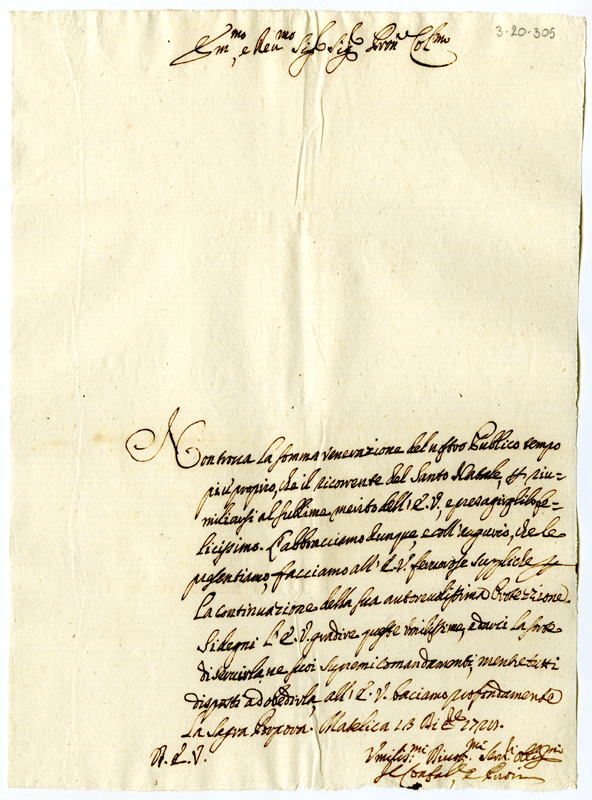 3-20-305
Em.mo, e Reu.mo Sig.r Sig.r Pron.e Col.mo
Non troua la somma venerazione del nostro Publico tempo
più proprio, che il ricorrente del Santo Natale, p riu-
miliarsi al sublime merito dell'E.V., e presagirglilo fe-
licissimo. L'abbracciamo dunque, e coll'augurio, che le
presentiamo, facciamo all'E.V. feruorose suppliche p
la continuazione della sua autoreuolissima Protezzione.
Si degni l'E.V. gradire queste vmilissime, e darci la sorte
di seruirla ne suoi supremi comandamenti, mentre tutti
disposti ad obedirla, all'E.V. baciamo profondamente
la Sagra Porpora. Matelica 13 Di
D. E. V.
Vmilis.mi Diuot.mi Seru.i Obl
Il Confal.e e Priori